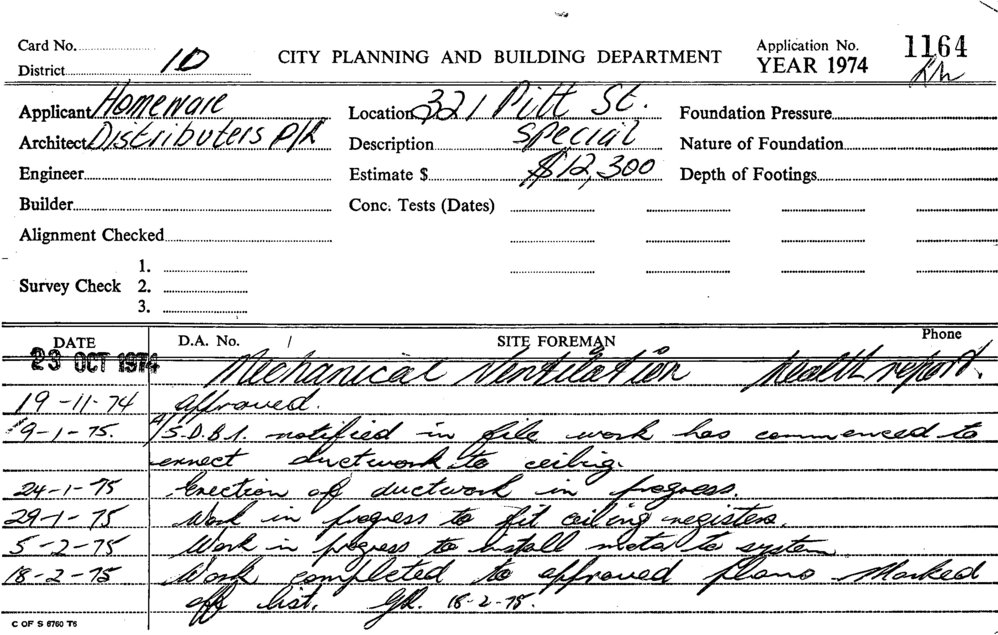 Card No.
District 10
CITY PLANNING AND BUILDING DEPARTMENT
Application No. 1164
YEAR 1974
Applicant Homeware
Location 321 Pitt St.
Foundation Pressure
Architect Distributers P/L
Description Special
Nature of Foundation
Engineer
Estimate $ $12,300
Depth of Footings
Builder
Conc. Tests (Dates)
Alignment Checked
Survey Check 1.
2.
3.
DATE D.A. No. / SITE FOREMAN Phone
23 OCT 1974 Mechanical Ventilation health report.
19-11-74 approved.
9-1-75. A/S.D.B.I. notified in file work has commenced to
errect ductwork to ceiling.
24-1-75 Erection of ductwork in progress.
29-1-75 Work in progress to fit ceiling registers.
5-2-75 Work in progress to install motor to system
18-2-75 Work completed to approved plans Marked
off list. 18-2-75.
C OF S 6760 T6